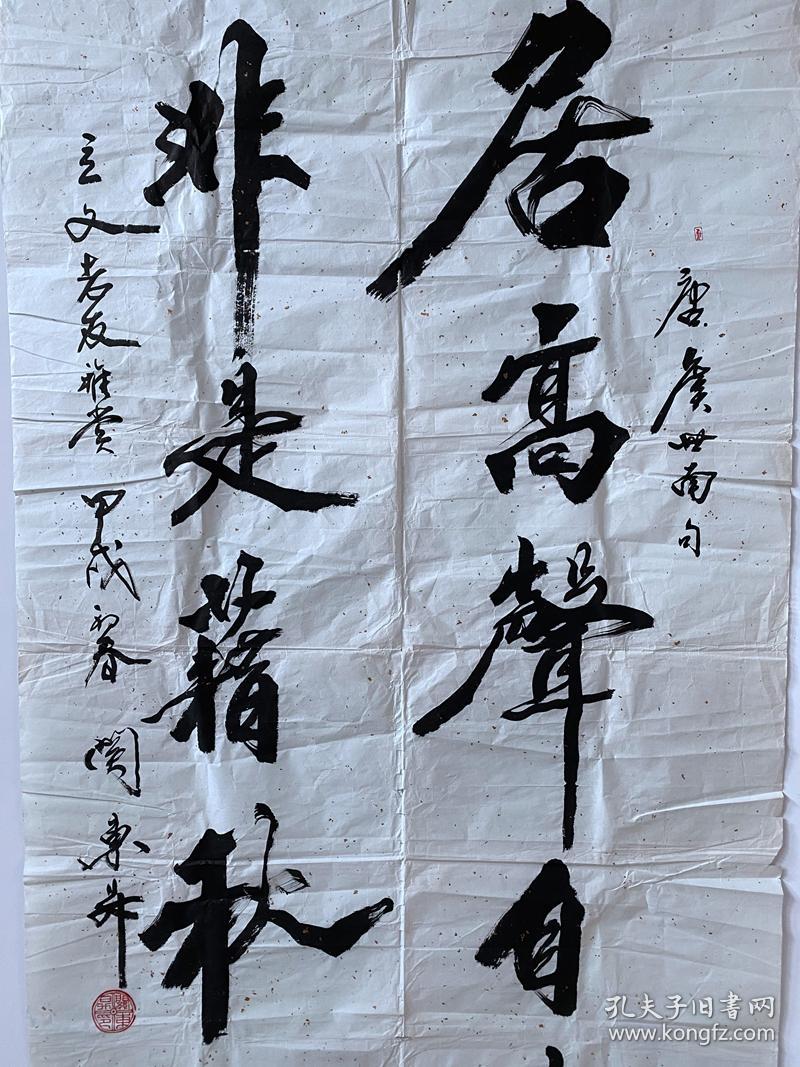 居高聲自
非是藉秋
唐虞世南句
立文老友雅赏 甲戌初春 関東升
孔夫子旧書网
www.kongfz.com